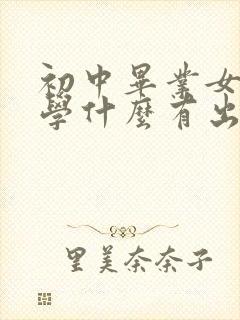 初中畢業女
學什麼有出
里美奈奈子